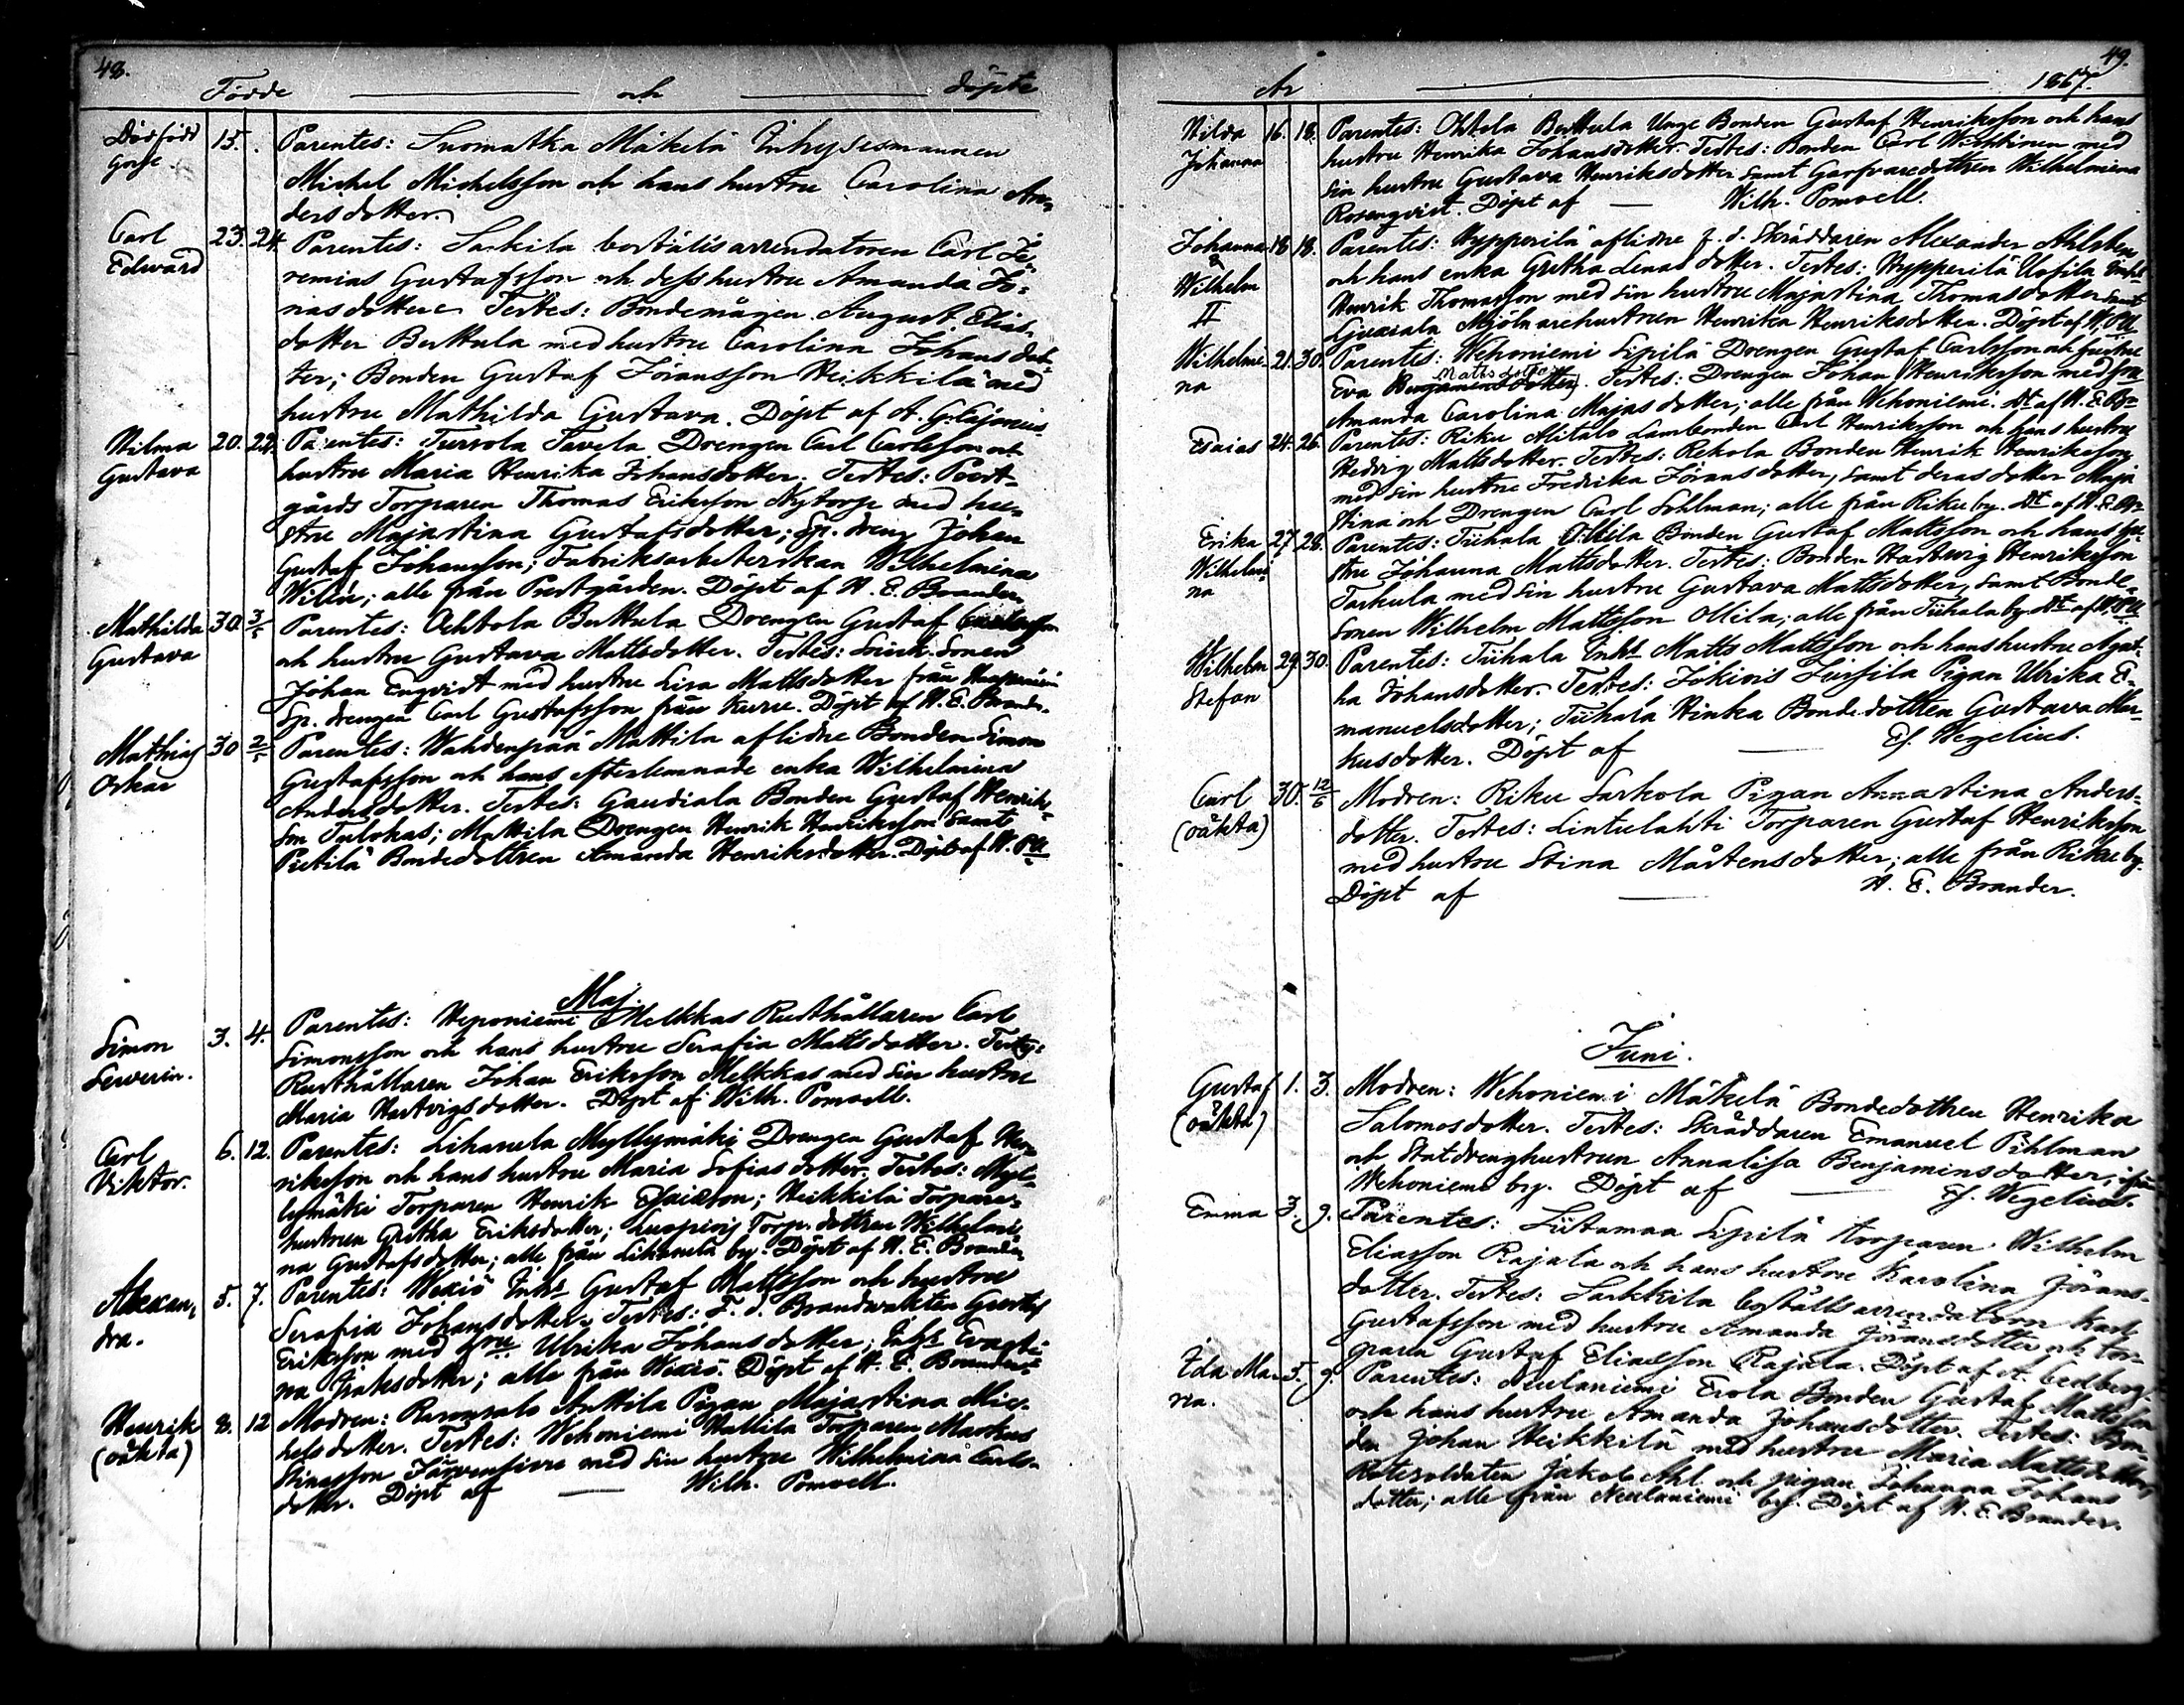 48.
Födde och döpte
Dödfödt 15. Parentes: Suomatka Mäkelä Inhysesmannen
gosse. Michel Michelsson och hans hustru Carolina An-
dersdotter.
Carl 23. 24. Parentes: Sarkila boställsarrendatoren Carl Je-
Edward remias Gustafsson och dess hustru Amanda Jö-
ransdotter. Testes: Bondemågen August Elias-
dotter Berttula med hustru Carolina Johansdot-
ter; Bonden Gustaf Jöransson Heikkilä med
hustru Mathilda Gustava. Döpt af A. G. Cajonius.
Hilma 20. 22. Parentes: Tursola Tavela Drengen Carl Carlsson och
Gustava hustru Maria Henrika Johansdotter. Testes: Prest-
gårds Torparen Thomas Eriksson Nytorp med hu-
stru Majastina Gustafsdotter; Sp. dreng Johan
Gustaf Johansson; Fabriksarbeterskan Wilhelmina
Wilén; alle från Prestgården. Döpt af H. E. Brander.
Mathilda 30. 3/5 Parentes: Ochtola Berttula Drengen Gustaf
Gustava och hustru Gustava Mattsdotter. Testes: Sonen
Johan Engvist med hustru Lisa Mattsdotter från
Sp. drengen Carl Gustafsson från Kuru. Döpt af H. E. Brander.
Mathias 30 2/5 Parentes: Wahdenpää Mattila aflidne Bonden Simon
Oskar Gustafsson och hans efterlemnade enka Wilhelmina
Andersdotter. Testes: Gaudiala Bonden Gustaf Henriks-
son Tulokas; Mattila Drengen Henrik Henriksson samt
Pietilä Bondedottren Amanda Henriksdotter. Döpt af W. P-ll
Maj.
Simon 3. 4. Parentes: Heponiemi Melkkas Rusthållaren Carl
Serverin. Simonsson och hans hustru Serafia Mattsdotter. Testes:
Rusthållaren Johan Eriksson Melkkas med sin hustru
Maria Hartvigsdotter. Döpt af Wilh. Pomoell.
Carl 6. 12. Parentes: Lihasula Myllymäki Drengen Gustaf Hen-
Viktor. riksson och hans hustru Maria Sofiasdotter. Testes: Myl-
lymäki Torparen Henrik Esaiasson; Heikkilä Torpare-
hustrun Gretha Eriksdotter; Torp. dottren Wilhelmi-
na Gustafsdotter; alle från Lihasula by. Döpt af H. E. Brander
Alexan- 5. 7. Parentes: Wexiö Inhs Gustaf Mattsson och hustru
dra. Serafia Johansdotter. Testes: F. d. Brandvakten Gustaf
Eriksson med hru Ulrika Johansdotter; Inhs Evasti-
na Isaksdotter; alle från Wexiö. Döpt af H. E. Brander.
Henrik 8. 12 Modren: Anttila Pigan Majastina Mic-
(oäkta) helsdotter. Testes: Wehoniemi Hallila Torparen Markus
Stinasson Järvensivu med sin hustru Wilhelmina Carls-
dotter. Döpt af Wilh. Pomoell.
49.
År 1867.
Hilda 16. 18. Parentes: Ohtola Berttula Unge Bonden Gustaf Henriksson och hans
Johanna hustru Henrika Johansdotter. Testes: Bonden Carl med
sin hustru Gustava Henriksdotter samt Garfvaredottren Wilhelmina
Rosenqvist. Döpt af Wilh. Pomoell.
Johanna 18 18. Parentes: Hypperilä aflidne f. d. Skräddaren Alexander
& och hans enka Gretha Lenasdotter. Testes: Hypperilä Uotila Inhs
Wilhelm Henrik Thomasson med sin hustru Majastina Thomasdotter samt
II Mjölnarehustrun Henrika Henriksdotter. Döpt af W. P-ll
Wilhelmi- 21. 30. Parentes: Wehoniemi Sipilä Drengen Gustaf Carlsson och hustru
na Eva Benjaminsdotter Mattsdotter. Testes: Drengen Johan Henriksson med hru
Amanda Carolina Majasdotter; alle från Wehoniemi. Dt af H. E. Br
Esaias 24. 26. Parentes: Riku Alitalo Lambonden Carl Henriksson och hans hustru
Hedvig Mattsdotter. Testes: Rekola Bonden Henrik Henriksson
med sin hustru Fredrika Jöransdotter, samt deras dotter Maja
Stina och Drengen Carl Sohlman; alle från Riku by. Dt af H. E. Br
Erika 27 28. Parentes: Tiihala Ollila Bonden Gustaf Mattsson och hans hu-
Wilhelmi- stru Johanna Mattsdotter. Testes: Bonden Hartwig Henriksson
na Taskula med sin hustru Gustava Mattsdotter, samt Bonde-
sonen Wilhelm Mattsson Ollila; alle från Tiihala by. Dt af W. P-ll
Wilhelm 29. 30. Parentes: Tiihala Inhs Matts Mattsson och hans hustru Agat-
Stefan ha Johansdotter. Testes: Jokiois Pigan Ulrika E-
manuelsdotter; Tiihala Hinka Bondedottren Gustava Mar-
kusdotter. Döpt af Ef. Wegelius.
Carl 30. 12/6 Modren: Riku Sarkola Pigan Annastina Anders-
(oäkta) dotter. Testes: Lintulahti Torparen Gustaf Henriksson
med hustru Stina Mårtensdotter; alle från Riku by.
Döpt af H. E. Brander.
Juni.
Gustaf 1. 3. Modren: Wehoniemi Mäkelä Bondedottren Henrika
(oäkta) Salomosdotter. Testes: Skräddaren Emanuel Pihlman
och Statdrenghustrun Annalisa Benjaminsdotter, ifrån
Wehoniemi by. Döpt af Ef. Wegelius.
Emma 3. 9. Parentes: Liitamaa Sipilä torparen Wilhelm
Eliasson Rajala och hans hustru Karolina Jörans-
dotter. Testes: Sarkkila boställsarrendatorn Karl
Gustafsson med hustru Amanda Jöransdotter och tor-
paren Gustaf Eliasson Rajala. Döpt af A. Cedberg.
Ida Ma- 5. 9. Parentes: Neulaniemi Erola Bonden Gustaf Mattsson
ria. och hans hustru Amanda Johansdotter. Testes: Bon-
den Johan Heikkilä med hustru Maria Mattsdotter,
Rotesoldaten Jakob Ahl och pigan Johanna Johans
dotter; alle från Neulaniemi by. Döpt af H. E. Brander.